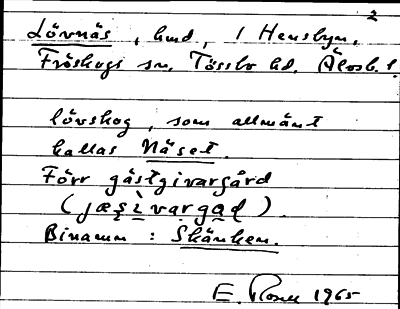 2
Lövnäs, hmd, 1 Hensbyn,
Fröskogs sn, Tössbo hd. Älvsb. l.
lövskog, som allmänt
kallas Näset.
Förr gästgivargård
(jæşìvargaḍ).
Binamn: Skänken.
E. 1965